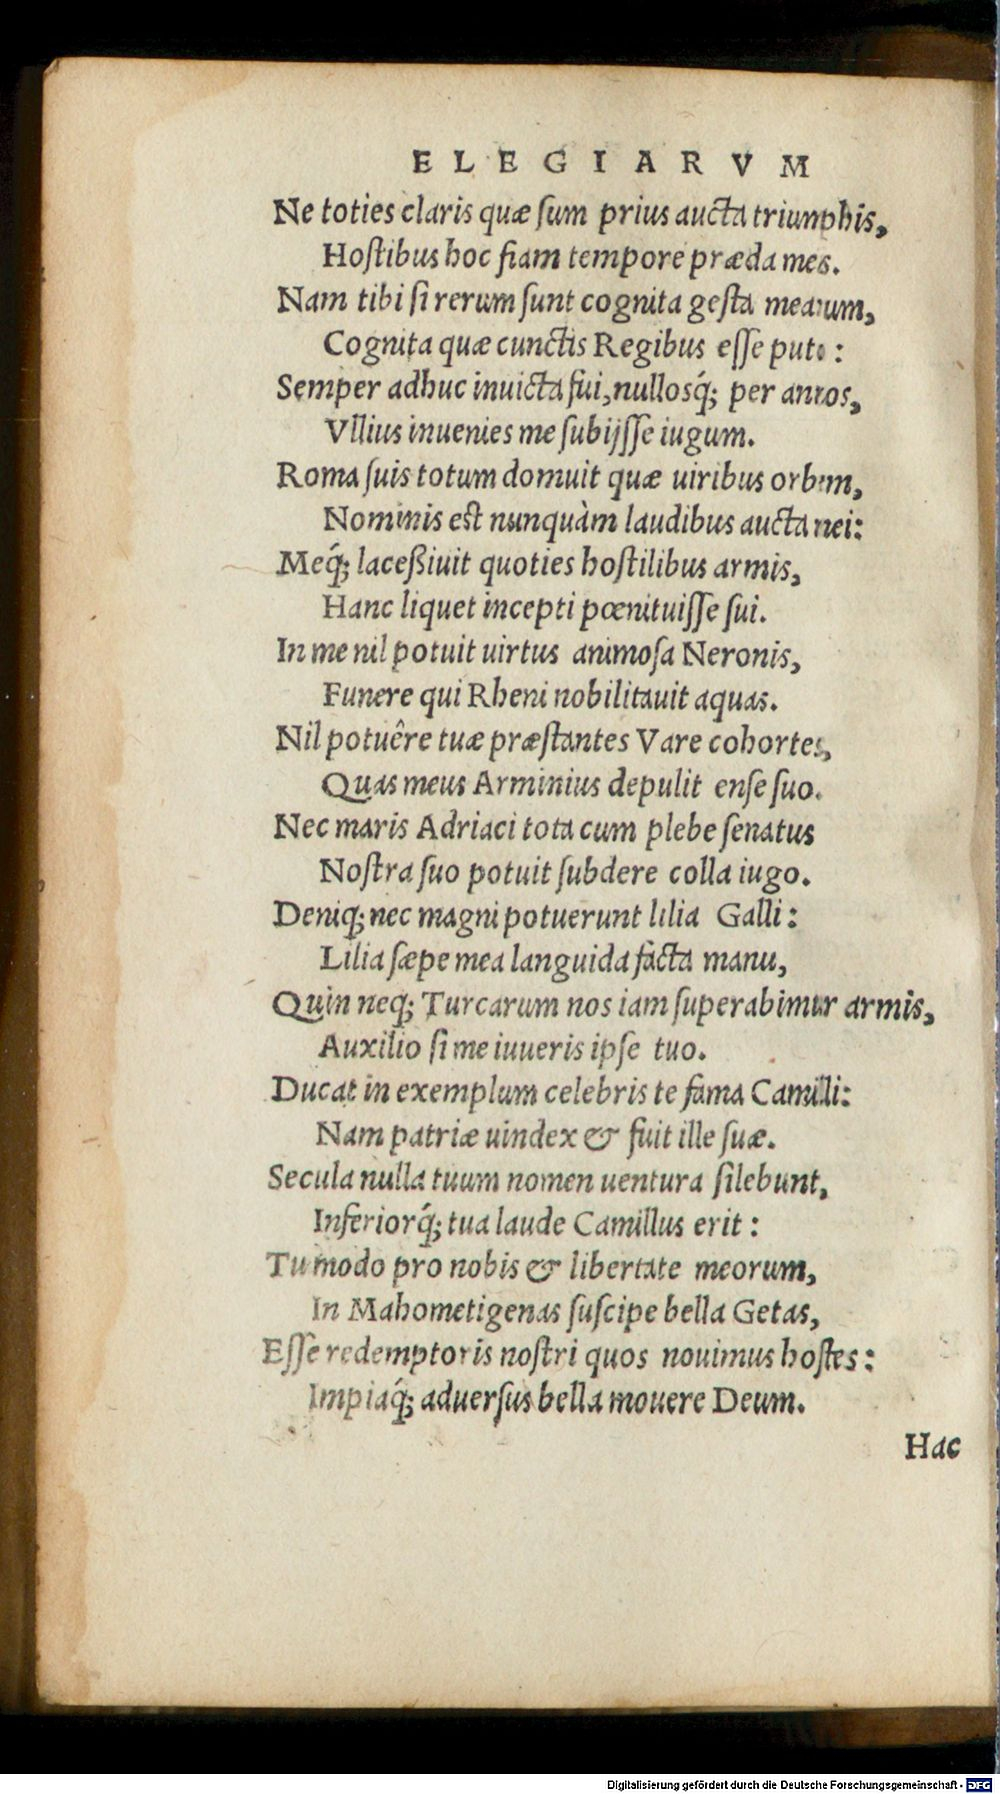 ELEGIARVM
Ne toties claris quæ ſum prius aucta triumphis,
Hoſtibus hoc fiam tempore præda mes.
Nam tibi ſi rerum ſunt cognita geſta mearum,
Cognita quæ cunctis Regibus eſſe puto :
Semper adhuc inuicta fui, nullosq́; per annos,
Vllius inuenies me ſubijſſe iugum.
Roma ſuis totum domuit quæ uiribus orbem,
Nominis est nunquàm laudibus aucta mei:
Meq́; laceßiuit quoties hoſtilibus armis,
Hanc liquet incepti pœnituiſſe ſui.
In me nil potuit uirtus animoſa Neronis,
Funere qui Rheni nobilitauit aquas.
Nil potuêre tuæ præſtantes Vare cohortes,
Quas meus Arminius depulit enſe ſuo.
Nec maris Adriaci tota cum plebe ſenatus
Noſtra ſuo potuit ſubdere colla iugo.
Deniq; nec magni potuerunt lilia Galli:
Lilia ſæpe mea languida facta manu,
Quin neq; Turcarum nos iam ſuperabimur armis,
Auxilio ſi me iuueris ipſe tuo.
Ducat in exemplum celebris te fama Camilli:
Nam patriæ uindex & fuit ille ſuæ.
Secula nulla tuum nomen uentura ſilebunt,
Inferiorq́; tua laude Camillus erit :
Tu modo pro nobis & libertate meorum,
In Mahometigenas ſuſcipe bella Getas,
Eſſe redemptoris noſtri quos nouimus hoſtes :
Impiaq́; aduerſus bella mouere Deum.
Hac
Digitalisierung gefördert durch die Deutsche Forschungsgemeinschaft - DFG